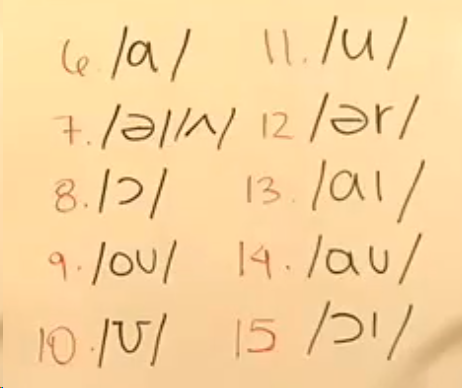 6. /a/
7. /ə//ʌ/
8. /ɔ/
9. /oʊ/
10. /ʊ/
11. /u/
12 /ər/
13. /aɪ/
14. /aʊ/
15 /ɔɪ/